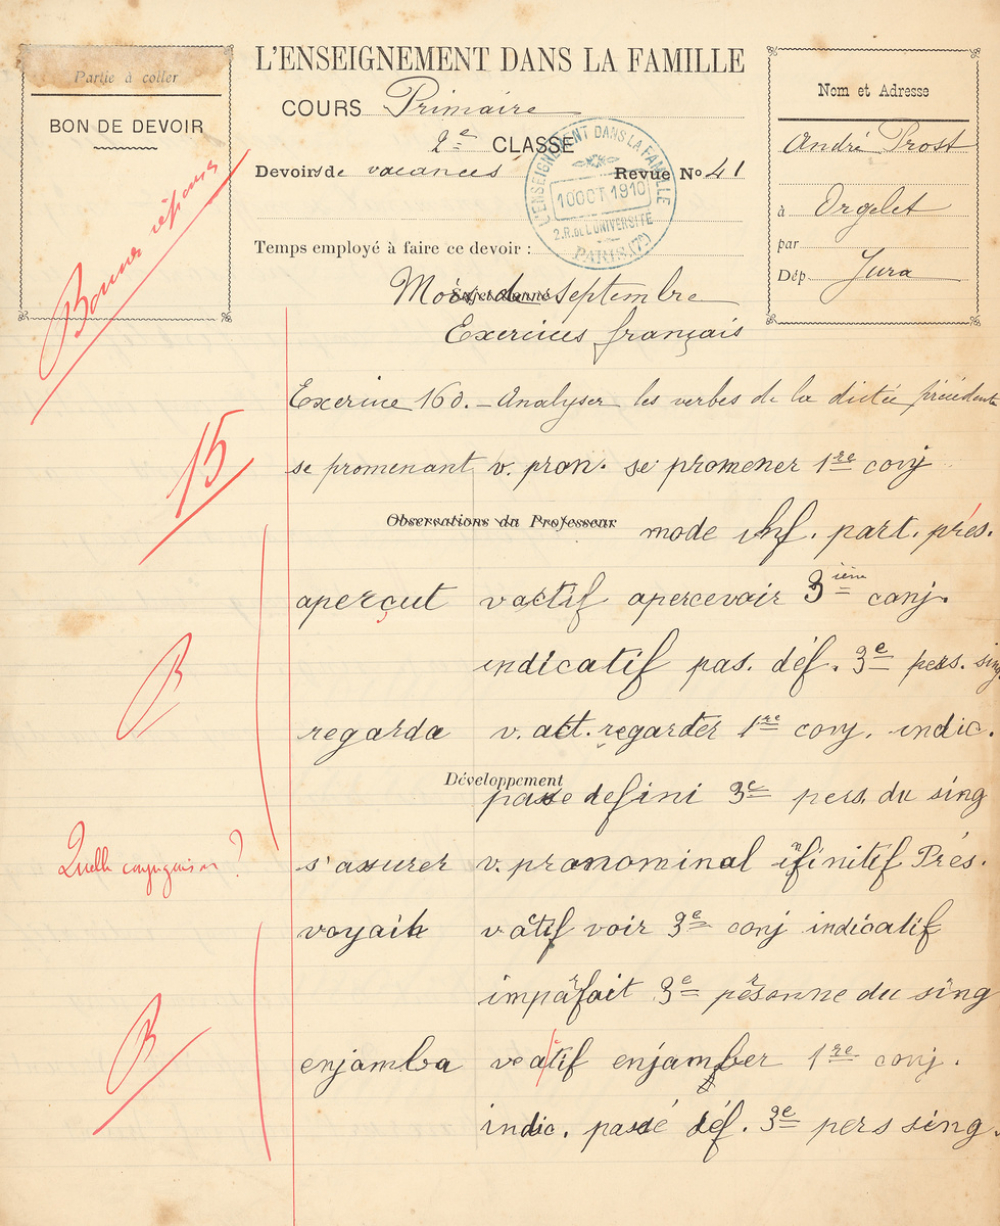 Partie à coller
BON DE DEVOIR
L'ENSEIGNEMENT DANS LA FAMILLE
COURS Primaire
2e CLASSE
Devoirs de vacances Revue No 41
Temps employé à faire ce devoir :
L'ENSEIGNEMENT DANS LA FAMILLE
10 OCT 1910
2.R.DE L'UNIVERSITÉ
PARIS (7e)
Nom et Adresse
André Prost
à Orgelet
par
Dép. Jura
Bonnes réponses
Sujet donné
Mois de septembre
Exercices français
Exercice 160. - Analyser les verbes de la dictée précédente
15
se promenant v. pron. se promener 1re conj
Observations du Professeur
mode inf. part. prés.
aperçut v actif apercevoir 3ième conj.
B
indicatif pas. déf. 3e pers. sing
regarda v. act. regarder 1re conj. indic.
Développement
passe defini 3e pers. du sing
Quelle conjugaison ?
s'assurer v. pronominal infinitif Prés.
voyait v actif voir 3e conj indicatif
imparfait 3e personne du sing
B
enjamba ve atif enjamber 1re conj.
indic. passé déf. 3e pers sing.